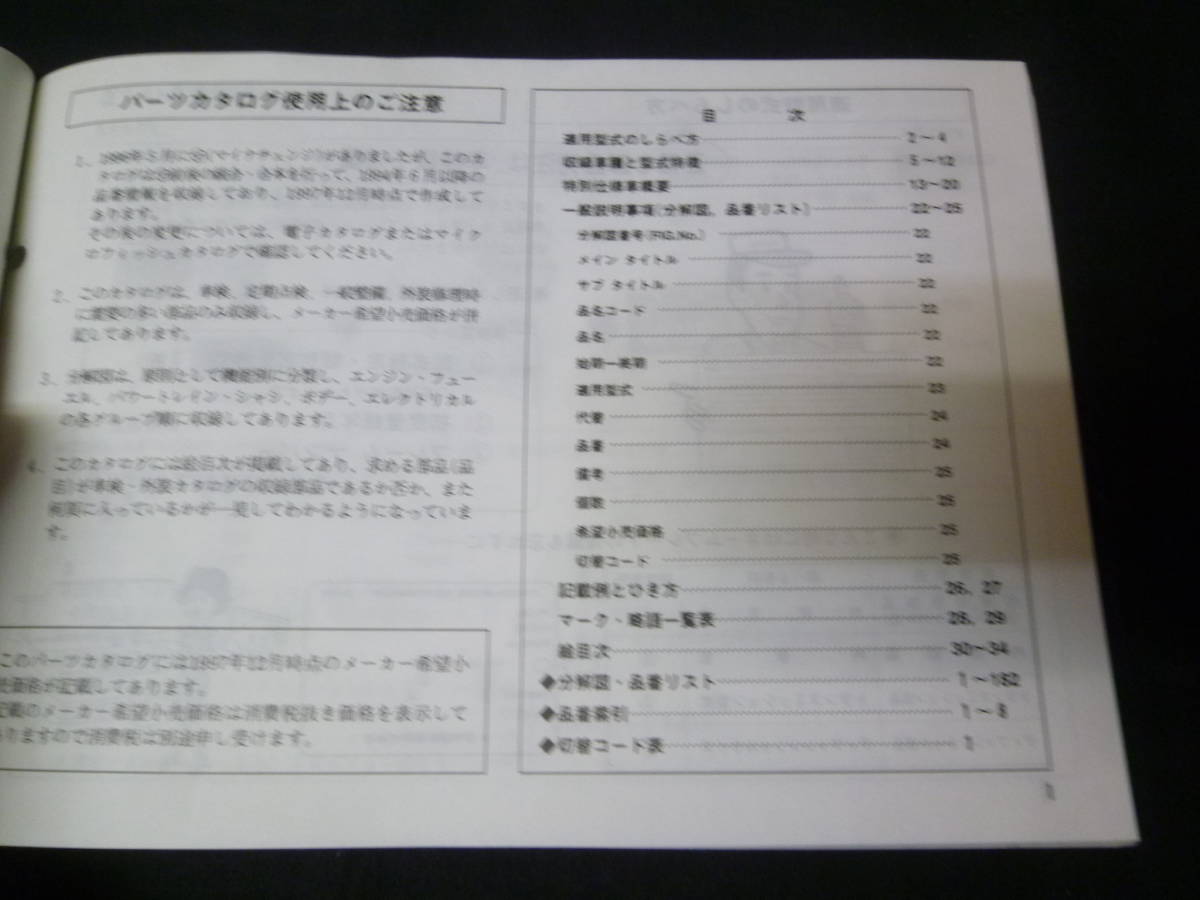 パーツカタログ使用上のご注意
1、1996年5月に㋮(マイクチェンジ)がありましたが、このカ
タログは㋮前後の統合・合本を行って、1994年6月以降の
品番情報を収録しており、1997年12月時点で作成して
あります。
その後の変更については、電子カタログまたはマイク
ロフィッシュカタログで確認してください。
2、このカタログは、車検、定期点検、一般整備、外装修理時
に需要の多い部品のみ収録し、メーカー希望小売価格が併
記してあります。
3、分解図は、原則として機能別に分類し、エンジン・フュー
エル、パワートレイン・シャシ、ボデー、エレクトリカル
の各グループ順に収録してあります。
4、このカタログには絵目次が掲載してあり、求める部品(品
番)が車検・外装カタログの収録部品であるか否か、また
何頁に入っているかが一見してわかるようになっていま
す。
このパーツカタログには1997年12月時点のメーカー希望小
売価格が記載してあります。
記載のメーカー希望小売価格は消費税抜き価格を表示して
ありますので消費税は別途申し受けます。
目 次
適用型式のしらべ方 2〜4
収録車種と型式特徴 5〜12
特別仕様車概要 13〜20
一般説明事項(分解図, 品番リスト) 22〜25
分解図番号(FIG.No.) 22
メイン タイトル 22
サブ タイトル 22
品名コード 22
品名 22
始期ー終期 22
適用型式 23
代替 24
品番 24
備考 25
個数 25
希望小売価格 25
切替コード 25
記載例とひき方 26, 27
マーク・略語一覧表 28, 29
絵目次 30〜34
◆分解図・品番リスト 1〜182
◆品番索引 1〜8
◆切替コード表 1